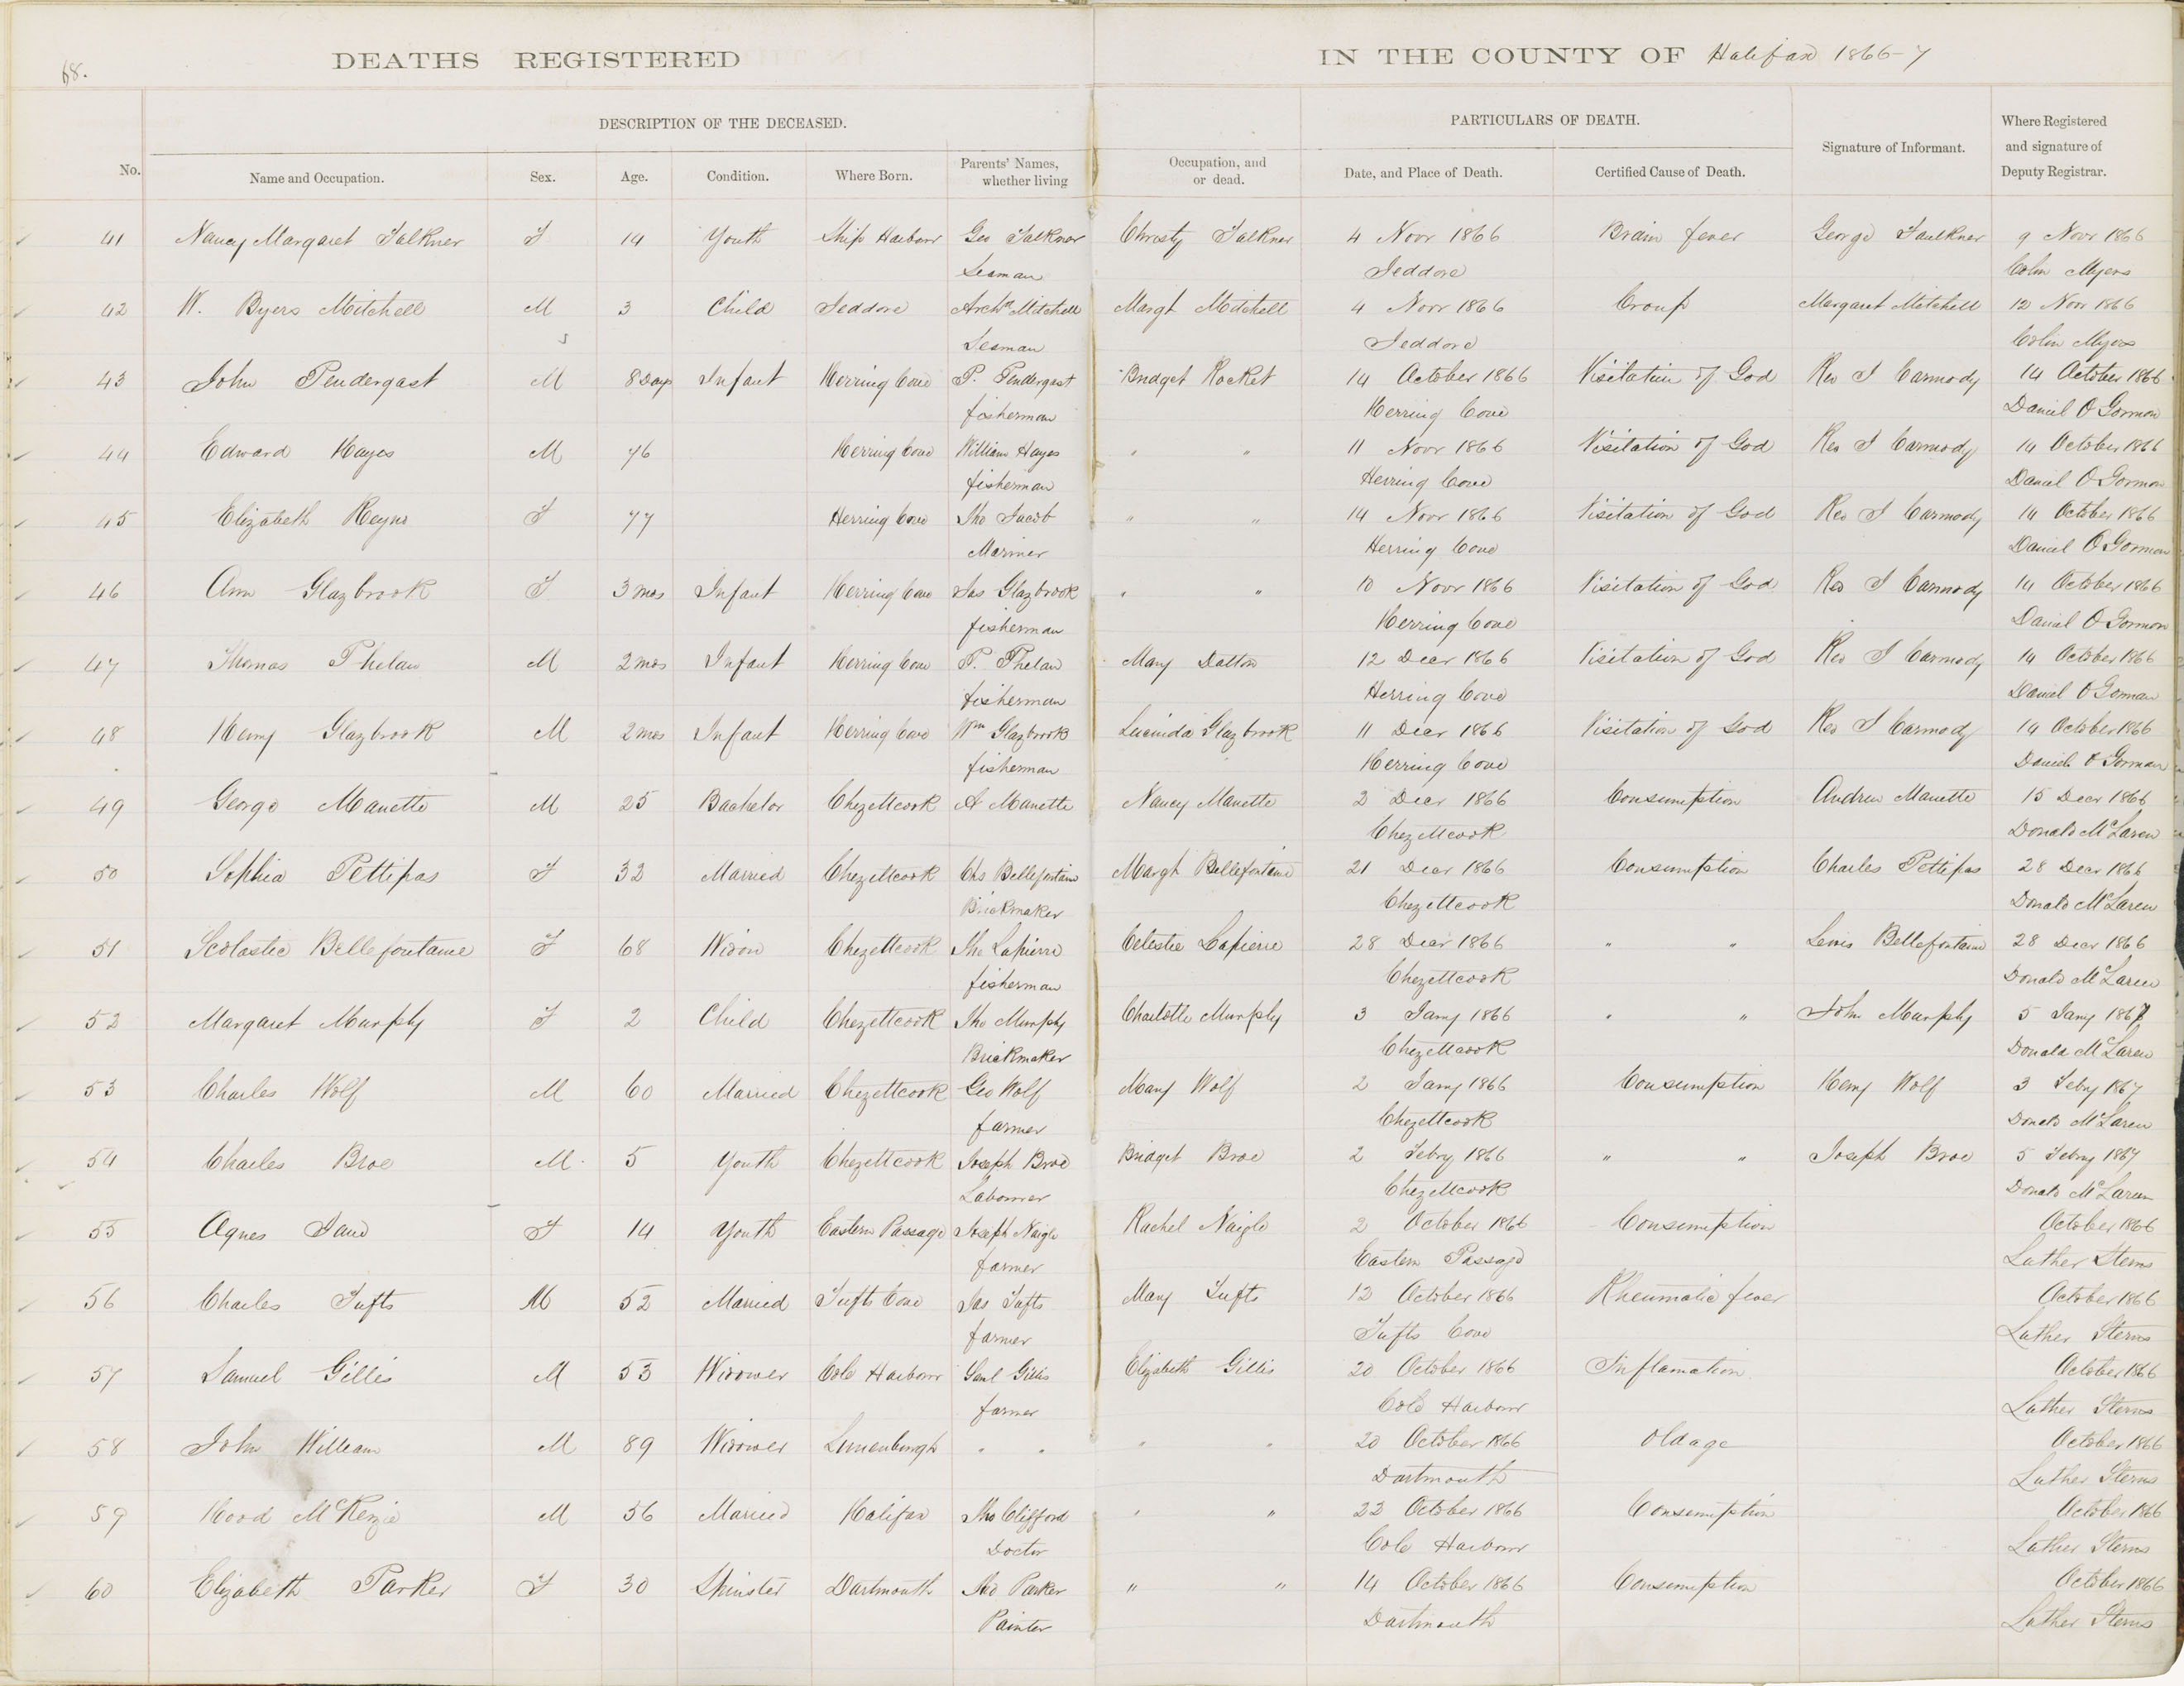 68.
DEATHS REGISTERED IN THE COUNTY OF Halifax 1866-7
DESCRIPTION OF THE DECEASED. PARTICULARS OF DEATH.
No. Name and Occupation. Sex. Age. Condition. Where Born. Parents' Names, whether living Occupation, and or dead. Date, and Place of Death. Certified Cause of Death. Signature of Informant. Where Registered and signature of Deputy Registrar.
41 Nancy Margaret Falkner F 14 Youth Ship Harbour Geo Falkner Christy Falkner 4 Novr 1866 Brain fever George Faulkner 9 Novr 1866
Seaman Jeddore Colin Myers
42 W. Byers Mitchell M 3 Child Jeddore Archd Mitchell Margt Mitchell 4 Novr 1866 Croup Margaret Mitchell 12 Novr 1866
Seaman Jeddore Colin Myers
43 John Pendergast M 8 Days Infant Herring Cove P. Pendergast Bridget Rocket 14 October 1866 Visitation of God Rev J Carmody 14 October 1866
fisherman Herring Cove Daniel O Gorman
44 Edward Hayes M 76 Herring Cove William Hayes " " 11 Novr 1866 Visitation of God Rev J Carmody 14 October 1866
fisherman Herring Cove Daniel O Gorman
45 Elizabeth Reyno F 77 Herring Cove Jno Jacob " " 14 Novr 1866 Visitation of God Rev J Carmody 14 October 1866
Mariner Herring Cove Daniel O Gorman
46 Ann Glazbrook F 3 mos Infant Herring Cove Jas Glazbrook " " 10 Novr 1866 Visitation of God Rev J Carmody 14 October 1866
fisherman Herring Cove Daniel O Gorman
47 Thomas Phelan M 2 mos Infant Herring Cove P. Phelan Mary Dalton 12 Decr 1866 Visitation of God Rev J Carmody 14 October 1866
fisherman Herring Cove Daniel O Gorman
48 Henry Glazbrook M 2 mos Infant Herring Cove Wm Glazbrook Lucinda Glazbrook 11 Decr 1866 Visitation of God Rev J Carmody 14 October 1866
fisherman Herring Cove Daniel O Gorman
49 George Manette M 25 Bachelor Chezettcook A Manette Nancy Manette 2 Decr 1866 Consumption Andrew Manette 15 Decr 1866
Chezettcook Donald McLaren
50 Sophia Pettipas F 32 Married Chezettcook Chs Bellefontaine Margt Bellefontaine 21 Decr 1866 Consumption Charles Pettipas 28 Decr 1866
Brickmaker Chezettcook Donald McLaren
51 Scolastic Bellefontaine F 68 Widow Chezettcook Jno Lapierre Celestie Lapierre 28 Decr 1866 " " Louis Bellefontaine 28 Decr 1866
fisherman Chezettcook Donald McLaren
52 Margaret Murphy F 2 Child Chezettcook Jno Murphy Charlotte Murphy 3 Jany 1866 " " John Murphy 5 Jany 1867
Brickmaker Chezettcook Donald McLaren
53 Charles Wolf M 60 Married Chezettcook Geo Wolf Mary Wolf 2 Jany 1866 Consumption Henry Wolf 3 Febry 1867
farmer Chezettcook Donald McLaren
54 Charles Broe M 5 Youth Chezettcook Joseph Broe Bridget Broe 2 Febry 1866 " " Joseph Broe 5 Febry 1867
Labourer Chezettcook Donald McLaren
55 Agnes F 14 Youth Eastern Passage Joseph Naigle Rachel Naigle 2 October 1866 Consumption October 1866
farmer Eastern Passage Luther Sterns
56 Charles Tufts M 52 Married Tufts Cove Jas Tufts Mary Tufts 12 October 1866 Rheumatic fever October 1866
farmer Tufts Cove Luther Sterns
57 Samuel Gillis M 53 Widower Cole Harbour Gillis Elizabeth Gillis 20 October 1866 Inflamation October 1866
farmer Cole Harbour Luther Sterns
58 John William M 89 Widower Lunenburgh " " " " 20 October 1866 Old age October 1866
Dartmouth Luther Sterns
59 Hood McKenzie M 56 Married Halifax Jno Clifford " " 22 October 1866 Consumption October 1866
Doctor Cole Harbour Luther Sterns
60 Elizabeth Parker F 30 Spinster Dartmouth Jno Parker " " 14 October 1866 Consumption October 1866
Painter Dartmouth Luther Sterns